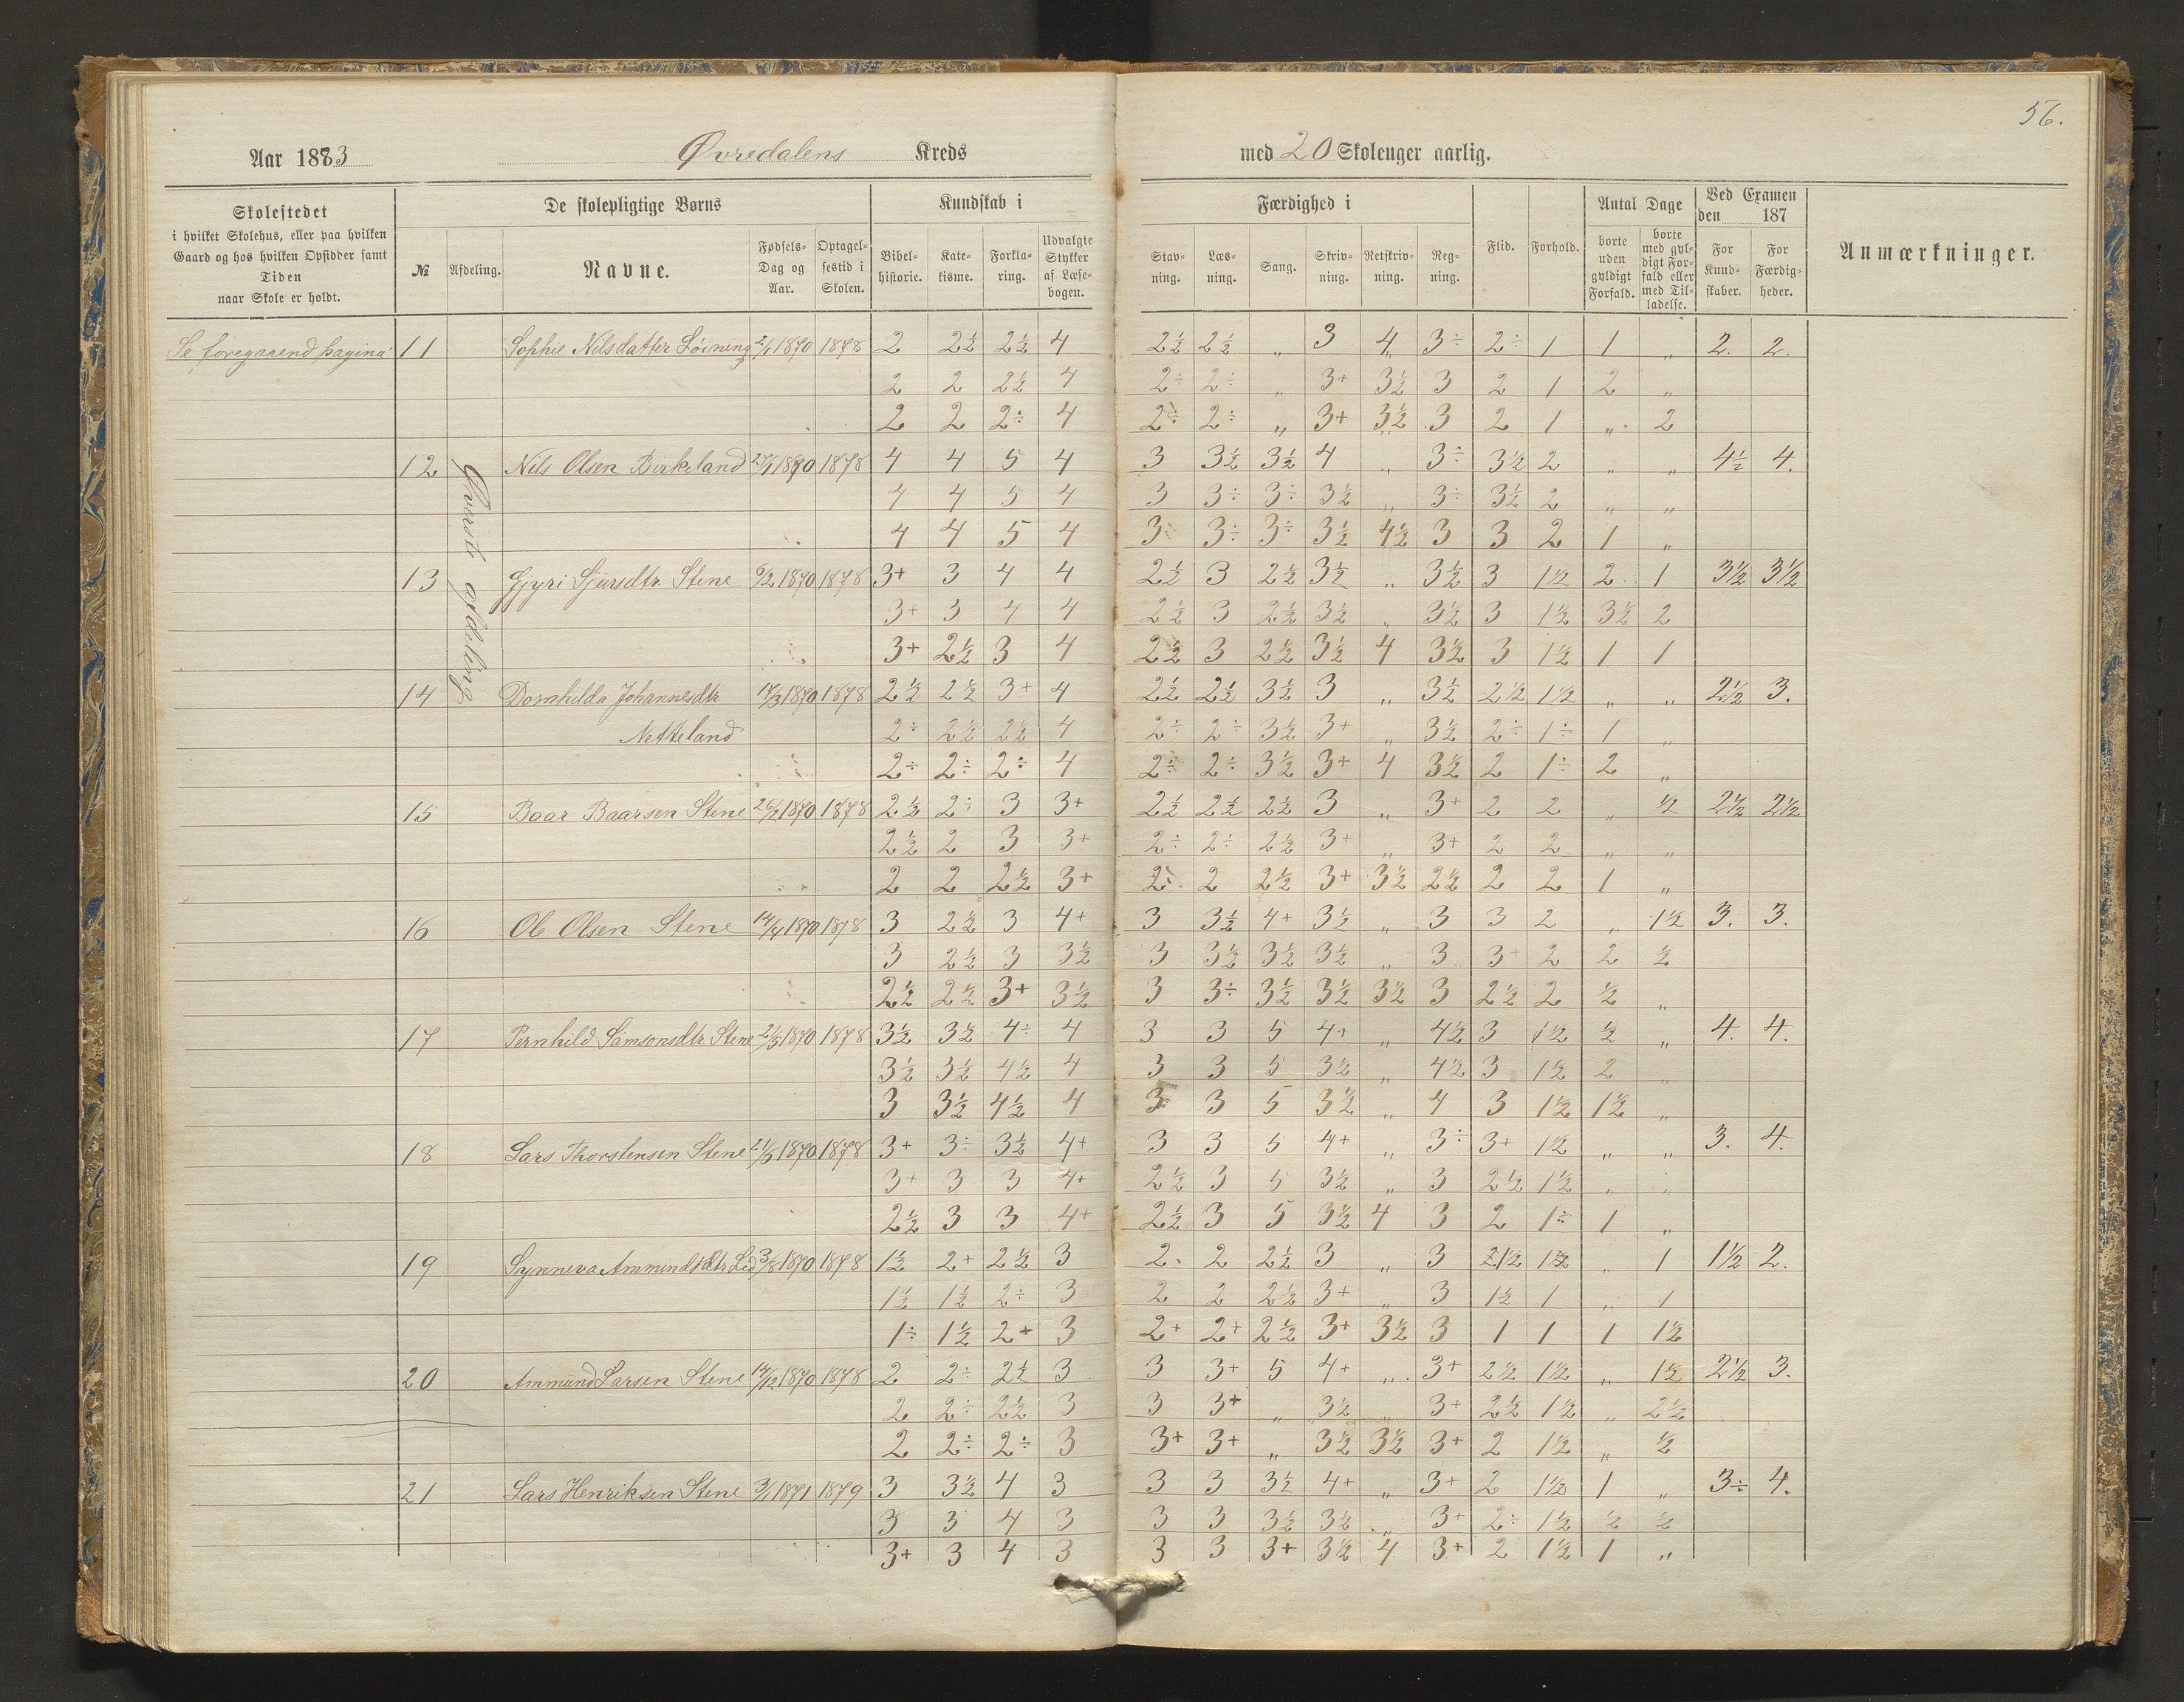 56.
Aar 1883 Øvredalens Kreds med 20 Skoleuger aarlig.
Skolestedet i hvilket Skolehus, eller paa hvilken Gaard og hos hvilken Opsidder samt Tiden naar Skole er holdt.
De skolepligtige Børns
№ Afdeling. Navne. Fødsels-Dag og Aar. Optagel-sestid i Skolen.
Kundskab i
Bibel-historie. Kate-kisme. Forkla-ring. Udvalgte Stykker af Læse-bogen.
Færdighed i
Stav-ning. Læs-ning. Sang. Skriv-ning. Retskriv-ning. Reg-ning.
Flid. Forhold.
Antal Dage
borte uden gyldigt Forfald. borte med gyl-digt For-fald eller med Til-ladelse.
Ved Examen den 187
For Kund-skaber. For Færdig-heder.
Anmærkninger.
Øverste afdeling
Se foregaaend pagina 11 Sophie Nilsdatter Löining 2/1 1870 1878 2 2½ 2½ 4 2½ 2½ „ 3 4 3÷ 2÷ 1 1 „ 2. 2.
2 2 2½ 4 2÷ 2÷ „ 3+ 3½ 3 2 1 2 „
2 2 2÷ 4 2÷ 2÷ „ 3+ 3½ 3 2 1 „ 2
12 Nils Olsen Birkeland 27/1 1870 1878 4 4 5 4 3 3½ 3½ 4 „ 3÷ 3½ 2 „ „ 4½ 4.
4 4 5 4 3 3÷ 3÷ 3½ „ 3÷ 3½ 2 „ „
4 4 5 4 3 3÷ 3÷ 3½ 4½ 3 3 2 1 „
13 Gjyri Sjursdtr. Stene 6/2 1870 1878 3+ 3 4 4 2½ 3 2½ 3½ „ 3½ 3 1½ 2 1 3½ 3½
3+ 3 4 4 2½ 3 2½ 3½ „ 3½ 3 1½ 3½ 2
3+ 2½ 3 4 2½ 3 2½ 3½ 4 3½ 3 1½ 1 1
14 Dornhilda Johannesdtr. 17/3 1870 1878 2½ 2½ 3+ 4 2½ 2½ 3½ 3 „ 3½ 2½ 1½ „ „ 2½ 3.
Netteland 2÷ 2½ 2½ 4 2÷ 2÷ 3½ 3+ „ 3½ 2÷ 1÷ 1 „
2÷ 2÷ 2÷ 4 2÷ 2÷ 3½ 3+ 4 3½ 2 1÷ 2 „
15 Baar Baarsen Stene 1870 1878 2½ 2÷ 3 3+ 2½ 2½ 2½ 3 „ 3+ 2 2 „ ½ 2½ 2½
2½ 2 3 3+ 2÷ 2÷ 2½ 3+ „ 3+ 2 2 „ „
2 2 2½ 3+ 2 2 2½ 3+ 3½ 2½ 2 2 1 „
16 Ole Olsen Stene 14/4 1870 1878 3 2½ 3 4+ 3 3½ 4+ 3½ „ 3 3 2 „ 1½ 3. 3.
3 2½ 3 3½ 3 3½ 3½ 3½ „ 3 3+ 2 2 ½
2½ 2½ 3+ 3½ 3 3÷ 3½ 3½ 3½ 3 2½ 2 ½ „
17 Pernhild Samsonsdtr. Stene 2/5 1870 1878 3½ 3½ 4÷ 4 3 3 5 4+ „ 4½ 3 1½ ½ „ 4. 4.
3½ 3½ 4½ 4 3 3 5 3½ „ 4½ 3 1½ 2 „
3 3½ 4½ 4 3 3 5 3½ „ 4 3 1½ 1½ „
18 Lars Thorstensen Stene 21/5 1870 1878 3+ 3÷ 3½ 4+ 3 3 5 4+ „ 3÷ 3+ 1½ „ „ 3. 4.
3+ 3 3 4+ 2½ 3 5 3½ „ 3 2½ 1½ „ „
2½ 3 3 4+ 2½ 3 5 3½ 4 3 2 1÷ 1 „
19 Synneva Ammundsdtr. Lid 3/8 1870 1878 1½ 2+ 2½ 3 2 2 2½ 3 „ 3 1½ „ 1 1½ 2.
1½ 1½ 2÷ 3 2 2 2½ 3+ „ 3 1½ 1 „ 1
1÷ 1½ 2+ 3 2+ 2+ 2½ 3+ 3½ 3 1 1 1 1½
20 Ammund Larsen Stene 14/12 1870 1878 2 2÷ 2½ 3 3 3+ 5 4+ „ 3+ 2½ 1½ „ 1½ 2½ 3.
2 2÷ 2½ 3 3 3+ „ 3½ „ 3+ 2½ 1½ „ 2½
2 2÷ 2÷ 3 3+ 3+ „ 3½ 3½ 3+ 2 1½ „ ½
21 Lars Henriksen Stene 3/1 1871 1879 3 3½ 4 3 3 3 3½ 4+ „ 3+ 2 1½ 1 „ 3÷ 4.
3 3 4 3 3 3 3½ 3½ „ 3+ 2÷ 1½ ½ ½
3+ 3 4 3 3 3 3+ 3½ 4 3+ 2 1½ 1 „